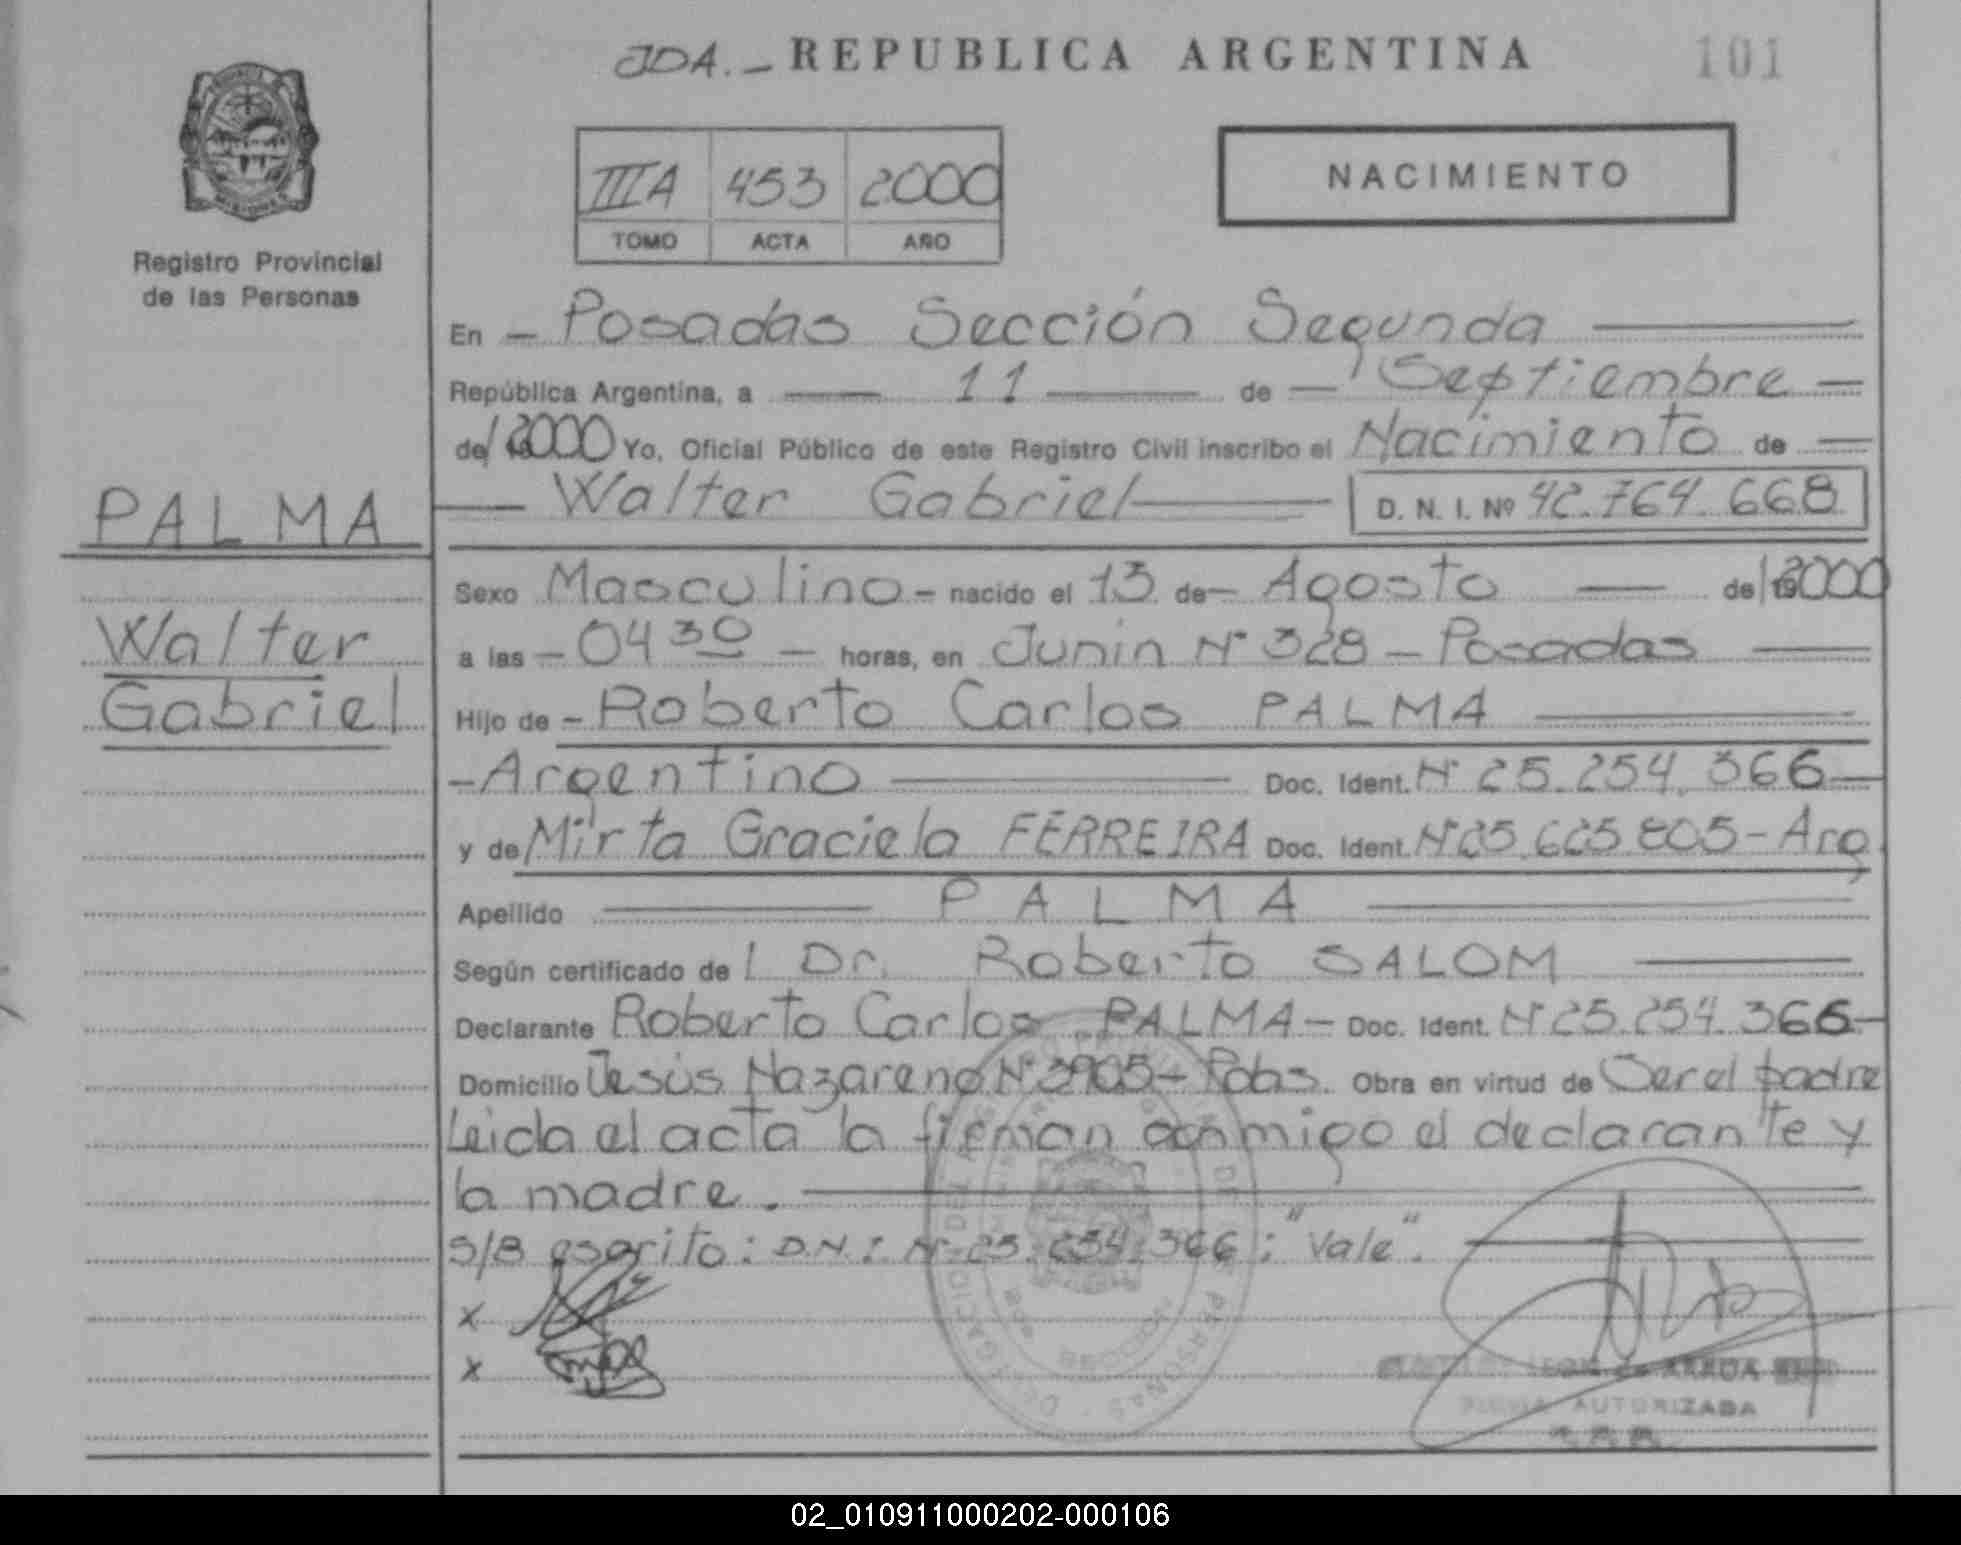 JDA. - REPUBLICA ARGENTINA 101
NACIMIENTO
IIIA 453 2000
TOMO ACTA AÑO
Registro Provincial
de las Personas
En - Posadas Sección Segunda
República Argentina, a 11 de - Septiembre -
de/ 2000 Yo, Oficial Público de este Registro Civil inscribo el Nacimiento de
PALMA
Walter Gabriel D. N. I. Nº 42.764.668
Sexo Masculino - nacido el 13 de - Agosto de/ 2000
Walter
a las - 04 30 - horas, en Junin Nº 328 - Posadas
Gabriel
Hijo de - Roberto Carlos PALMA
- Argentino Doc. Ident. Nº 25.254.366
y de Mirta Graciela FERREIRA Doc. Ident. Nº 25.625.805 - Arg
Apellido PALMA
Según certificado de / Dr. Roberto SALOM
Declarante Roberto Carlos PALMA - Doc. Ident. Nº 25.254.366 -
Domicilio Jesús Nazareno Nº 3905 - Pdas. Obra en virtud de Ser el padre
Leida el acta la firman conmigo el declarante y
la madre.
S/B escrito: D.N.I. Nº 25.254.366; "Vale".
X
X
ARRUA
FIRMA AUTORIZADA
02_010911000202-000106